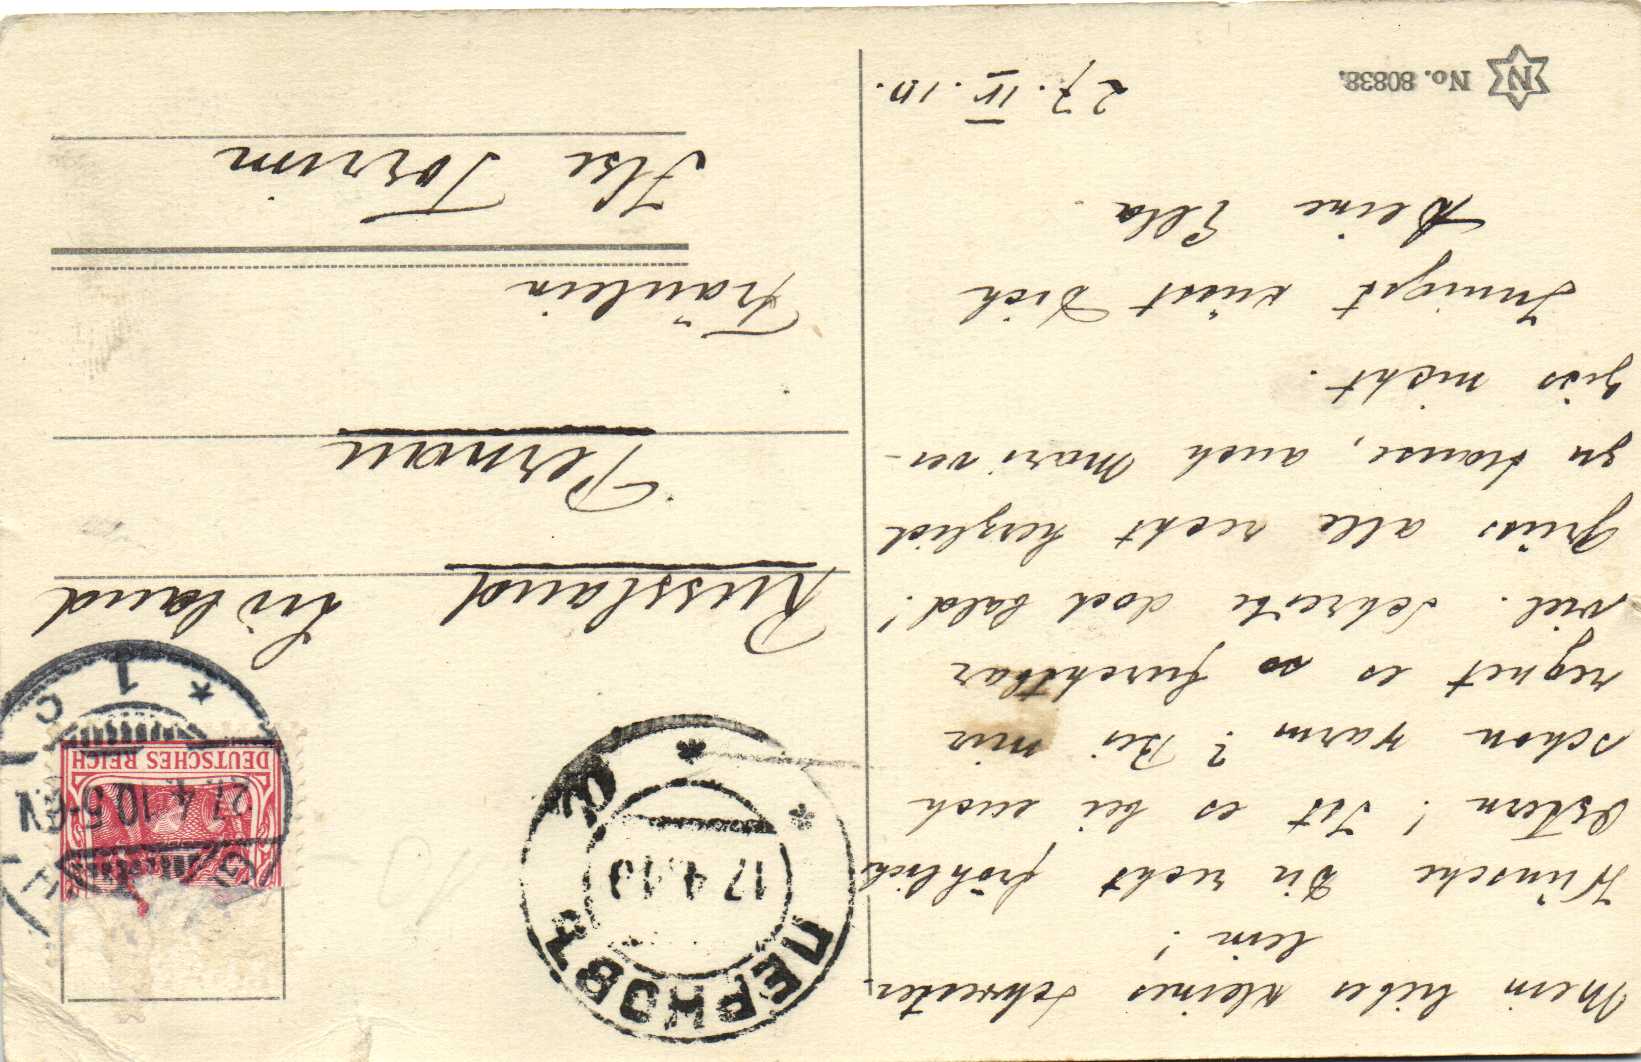 Mein liebes kleines Schwester-
lein!
Wünsche Dir recht fröhlich
Ostern! Ist es bei euch
schon warm? Bei mir
regnet es so furchtbar
viel. Schreibe doch bald!
Grüss alle recht herzlich
zu Hause, auch Mari ver-
giss nicht.
Innigst küsst Dich
Deine Ella.
27.IV.10.
N No. 80838.
ПЕРНОВЪ
17.4.10
DEUTSCHES REICH
27.4.10.5-6N
* 1 c
Russland Livland
Pernau
Fräulein
Ilse